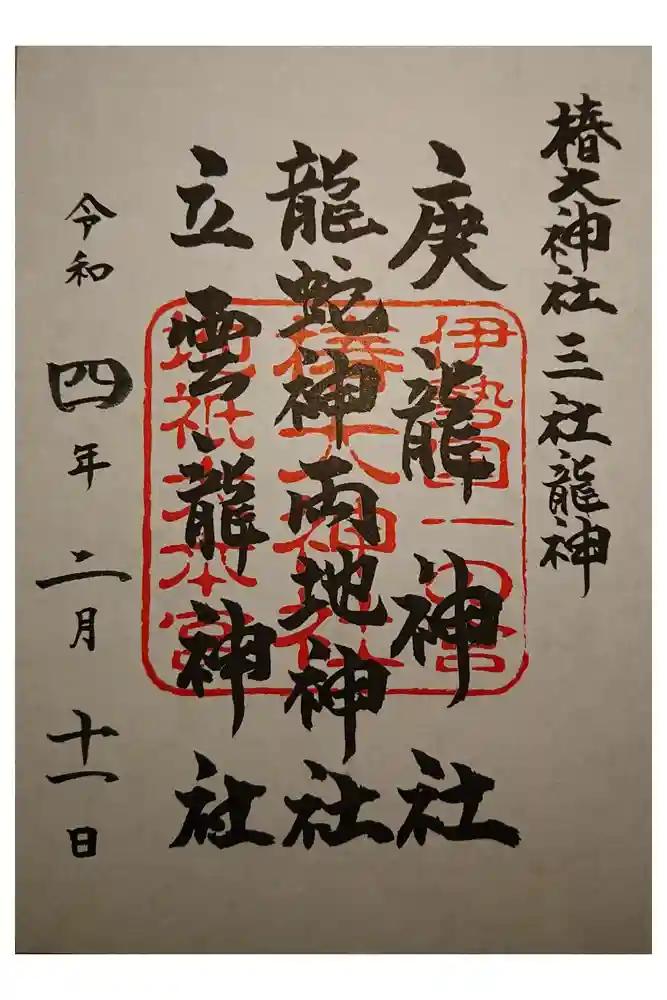 椿大神社三社龍神
庚龍神社
龍蛇神両地神社
立雲龍神社
令和四年二月十一日
伊勢国一の宮
椿大神社
地祇大本宮